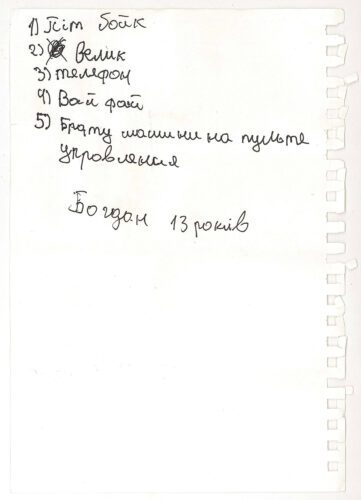 1) Піт бойк
2) Велик
3) телефон
4) Вай фай
5) Брату машини на пульте
управления
Богдан 13 років